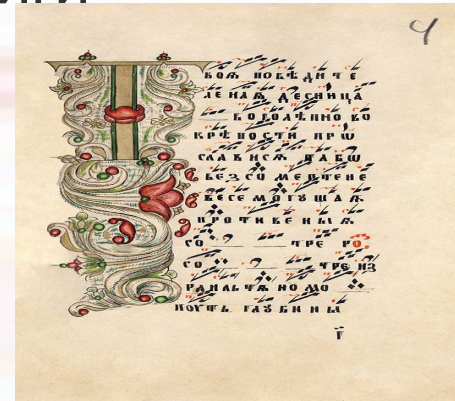 4
Т воѧ побѣдите
ленаѧ десница
боголѣпно во
крѣпости прѡ
слависѧ табѡ
безсомертене
весемогущаѧ
противеныѧ
со тре ро
со тре из
раильтѧномо
поуть глубины
г